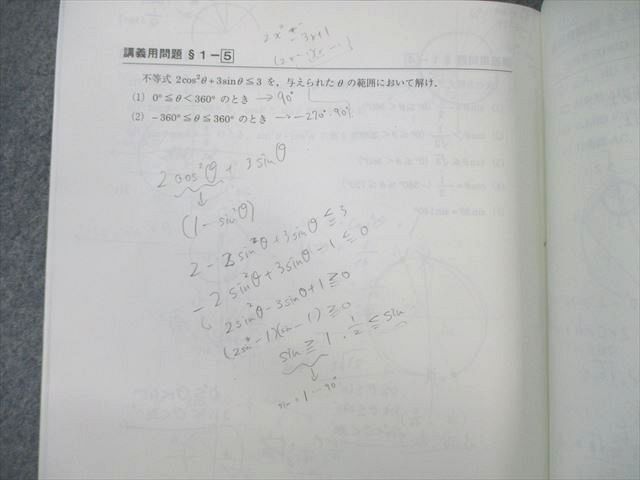 2x² - 3x+1
(2x-1)(x-1)
講義用問題 §1-5
不等式 2cos²θ+3sinθ≦3 を，与えられた θ の範囲において解け．
(1) 0°≦θ<360° のとき → 90°
(2) -360°≦θ≦360° のとき → -270°, 90°
2cos²θ + 3sinθ
↓
(1-sin²θ)
2-2sin²θ+3sinθ≦3
-2sin²θ+3sinθ-1≦0
2sin²θ-3sinθ+1≧0
(2sin-1)(sin-1)≧0
sin≧1, 1/2≦sin
↓
sin=1…90°